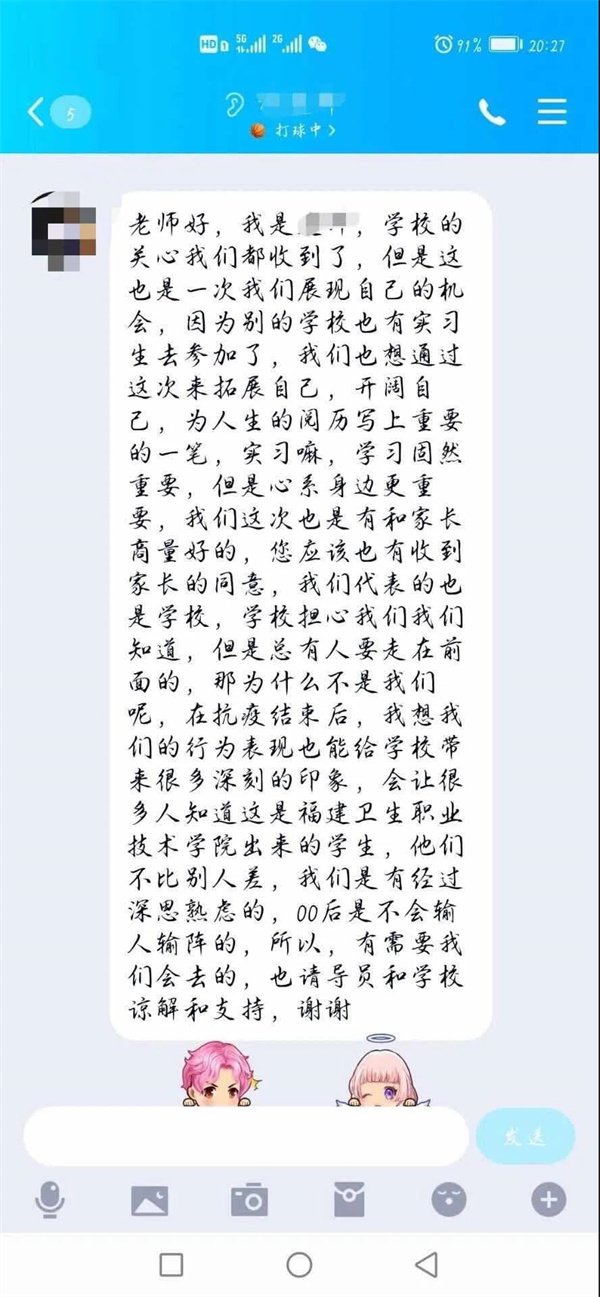 HD 1 5G 2G 91% 20:27
5
打球中 >
老师好，我是，学校的
关心我们都收到了，但是这
也是一次我们展现自己的机
会，因为别的学校也有实习
生去参加了，我们也想通过
这次来拓展自己，开阔自
己，为人生的阅历写上重要
的一笔，实习嘛，学习固然
重要，但是心系身边更重
要，我们这次也是有和家长
商量好的，您应该也有收到
家长的同意，我们代表的也
是学校，学校担心我们我们
知道，但是总有人要走在前
面的，那为什么不是我们
呢，在抗疫结束后，我想我
们的行为表现也能给学校带
来很多深刻的印象，会让很
多人知道这是福建卫生职业
技术学院出来的学生，他们
不比别人差，我们是有经过
深思熟虑的，00后是不会输
人输阵的，所以，有需要我
们会去的，也请导员和学校
谅解和支持，谢谢
发送